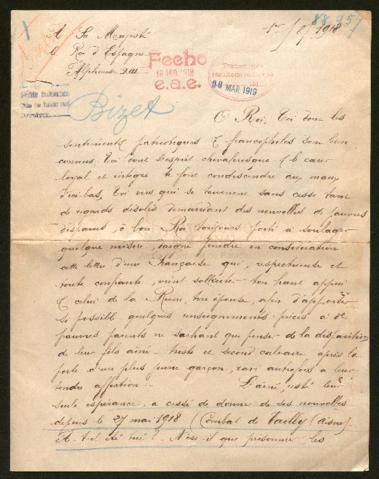 A Sa Majesté
le Roi d'Espagne
Alphonse XIII
1918
Fecho
e.a.e.
MAR 1919
Bizet
Ô Roi, Toi dont les
sentiments patriotiques & francophiles sont bien
connus Toi dont l'esprit chevaleresque & le cœur
loyal et intègre te font condescendre aux maux
Toi vers qui se tournent sans cesse tant
de regards désolés demandant des nouvelles de pauvres
disparus, ô bon Roi toujours porté à soulager
quelque misère, daigne prendre en considération
cette lettre d'une Française qui, respectueuse et
toute confiante, vient solliciter ton haut appui
& celui de la Reine, ton épouse, afin d'apporter
si possible quelques renseignements précis à de
pauvres parents ne sachant que penser de la disparition
de leur fils aîné. Triste et second calvaire après la
perte d'un plus jeune garçon, ravi autrefois à leur
tendre affection.
L'aîné, resté leur
seule espérance, a cessé de donner de ses nouvelles
depuis le 27 mai 1918 (Combat de Vailly (Aisne).
A-t-il été tué? N'est-il que prisonnier